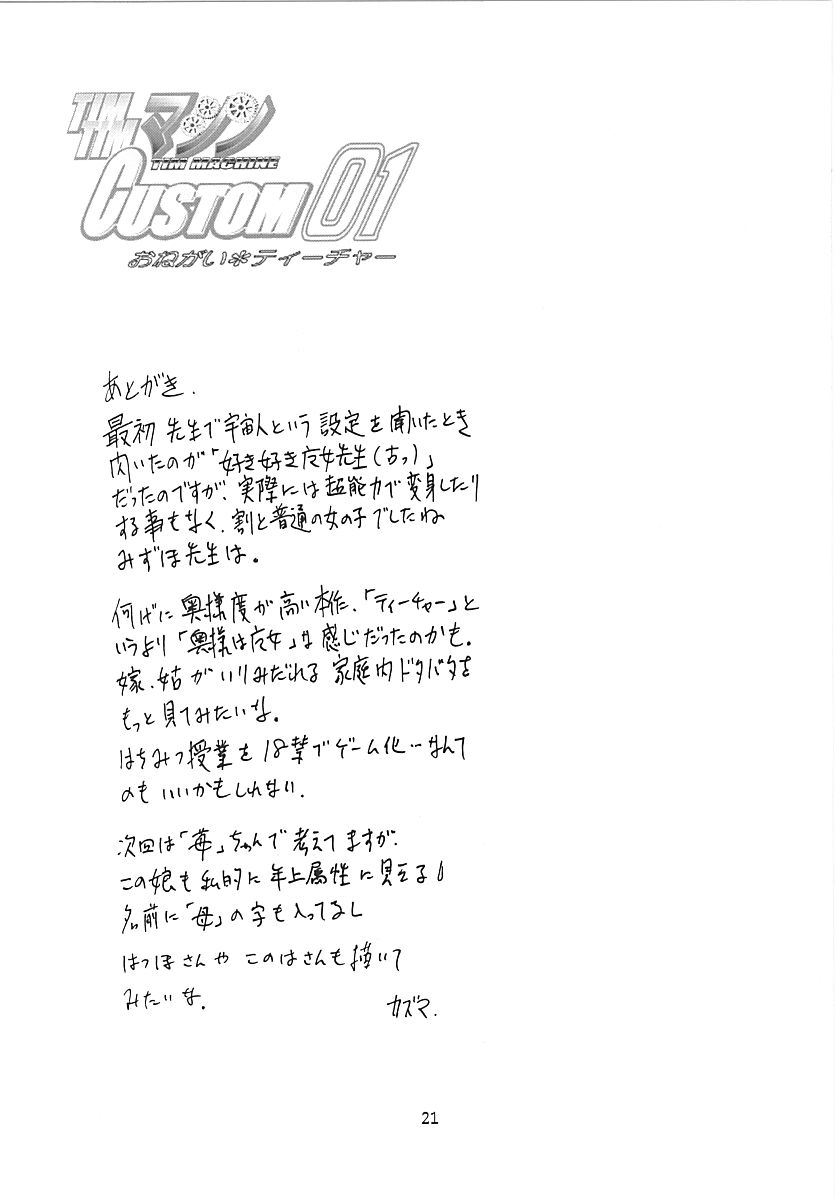 TIM TIM マシン
TIM MACHINE
CUSTOM 01
おねがい＊ティーチャー
あとがき.
最初 先生で宇宙人という設定を聞いたとき
聞いたのが「好き好き魔女先生(古っ)」
だったのですが、実際には超能力で変身したり
する事もなく、割と普通の女の子でしたね
みずほ先生は。
何げに奥様度が高い本作、「ティーチャー」と
いうより「奥様は魔女」な感じだったのかも。
嫁、姑がいりみだれる 家庭内ドタバタを
もっと見てみたいな。
はちみつ授業を18禁でゲーム化…なんて
のもいいかもしれない.
次回は「苺」ちゃんで考えてますが、
この娘も私的に年上属性に見える
名前に「母」の字も入ってるし
はつほさんや このはさんも描いて
みたいな。
カズマ.
21